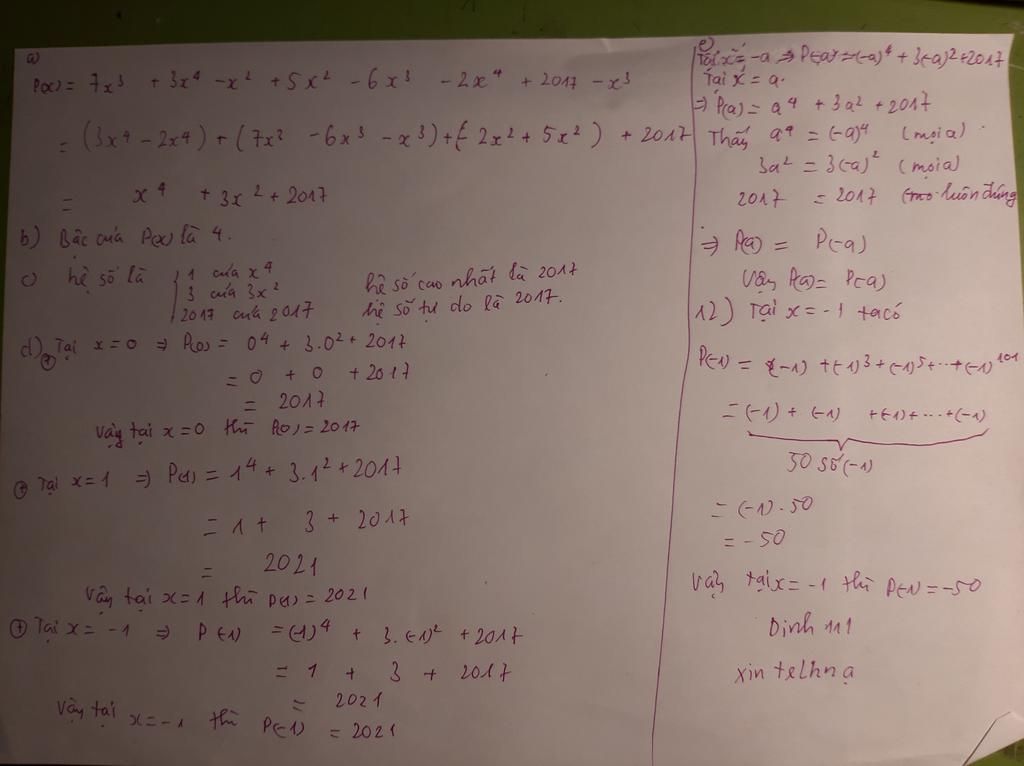 a)
P(x) = 7x³ + 3x⁴ - x² + 5x² - 6x³ - 2x⁴ + 2017 - x³
= (3x⁴ - 2x⁴) + (7x³ - 6x³ - x³) + (- 2x² + 5x²) + 2017
= x⁴ + 3x² + 2017
b) Bậc của P(x) là 4.
c) hệ số là { 1 của x⁴
3 của 3x²
2017 của 2017
hệ số cao nhất là 2017
hệ số tự do là 2017.
d) + Tại x = 0 ⇒ P(0) = 0⁴ + 3.0² + 2017
= 0 + 0 + 2017
= 2017
Vậy tại x = 0 thì P(0) = 2017
+ Tại x = 1 ⇒ P(1) = 1⁴ + 3.1² + 2017
= 1 + 3 + 2017
= 2021
Vậy tại x = 1 thì P(1) = 2021
+ Tại x = -1 ⇒ P(-1) = (-1)⁴ + 3.(-1)² + 2017
= 1 + 3 + 2017
= 2021
Vậy tại x = -1 thì P(-1) = 2021
e)
Tại x = -a ⇒ P(-a) = (-a)⁴ + 3(-a)² + 2017
Tại x = a.
⇒ P(a) = a⁴ + 3a² + 2017
Thấy a⁴ = (-a)⁴ (mọi a)
3a² = 3(-a)² (mọi a)
2017 = 2017 luôn đúng
⇒ P(a) = P(-a)
Vậy P(a) = P(-a)
12) Tại x = -1 ta có
P(-1) = (-1) + (-1)³ + (-1)⁵ + ... + (-1)¹⁰¹
= (-1) + (-1) + (-1) + ... + (-1)
50 số (-1)
= (-1) . 50
= -50
Vậy tại x = -1 thì P(-1) = -50
Dinh 111
xin telhn ạ